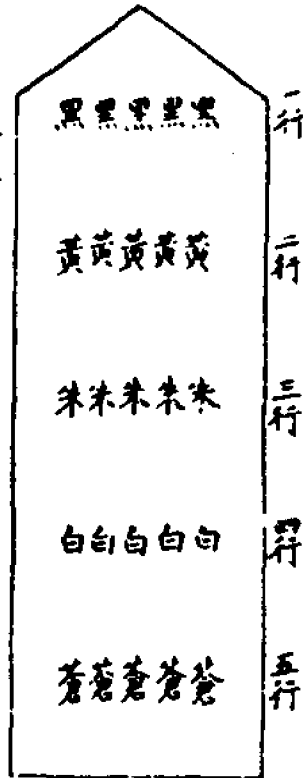 黑黑黑黑黑 一行
黃黃黃黃黃 二行
朱朱朱朱朱 三行
白白白白白 四行
蒼蒼蒼蒼蒼 五行